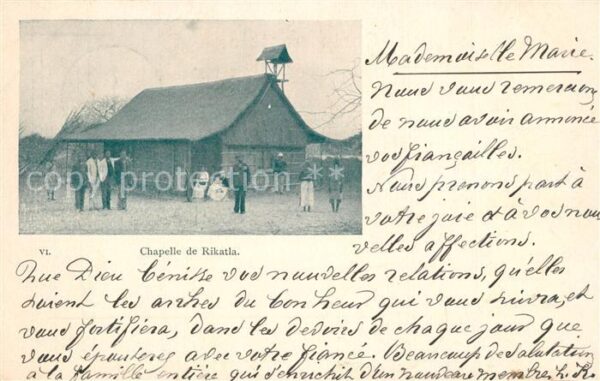 Mademoiselle Marie.
Nous vous remercions
de nous avoir annoncé
vos fiançailles.
Nous prenons part à
votre joie et à vos nou
velles affections.
Copyright protected
VI. Chapelle de Rikatla.
Que Dieu bénisse vos nouvelles relations, qu'elles
soient les arches du bonheur qui vous suivra, et
vous fortifiera, dans les devoirs de chaque jour que
vous épouserez avec votre fiancé. Beaucoup de salutations
à la famille entière qui s'enrichit d'un nouveau membre.